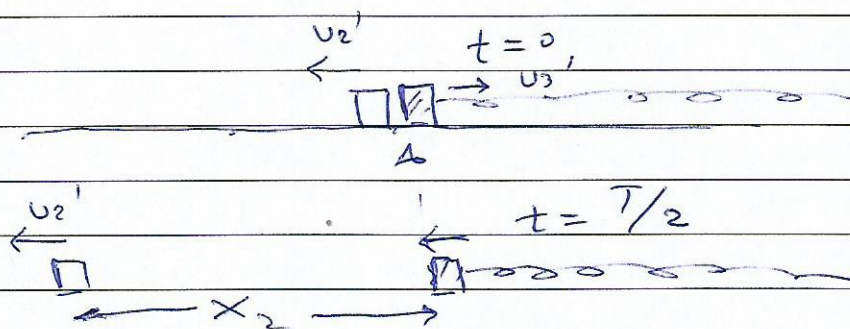 υ2' t = 0
υ3'
Δ
υ2' t = T/2
X2